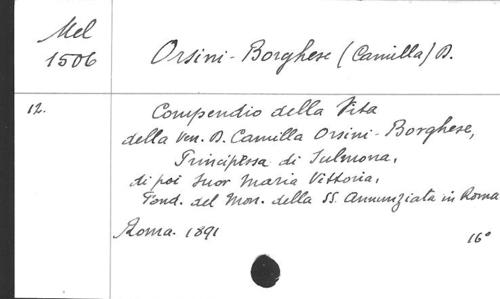 Mel
1506
Orsini-Borghese (Camilla) D.
12.
Compendio della Vita
della Ven. D. Camilla Orsini-Borghese,
Principessa di Sulmona,
di poi Suor Maria Vittoria,
Fond. del Mon. della SS. Annunziata in Roma
Roma. 1891
16°